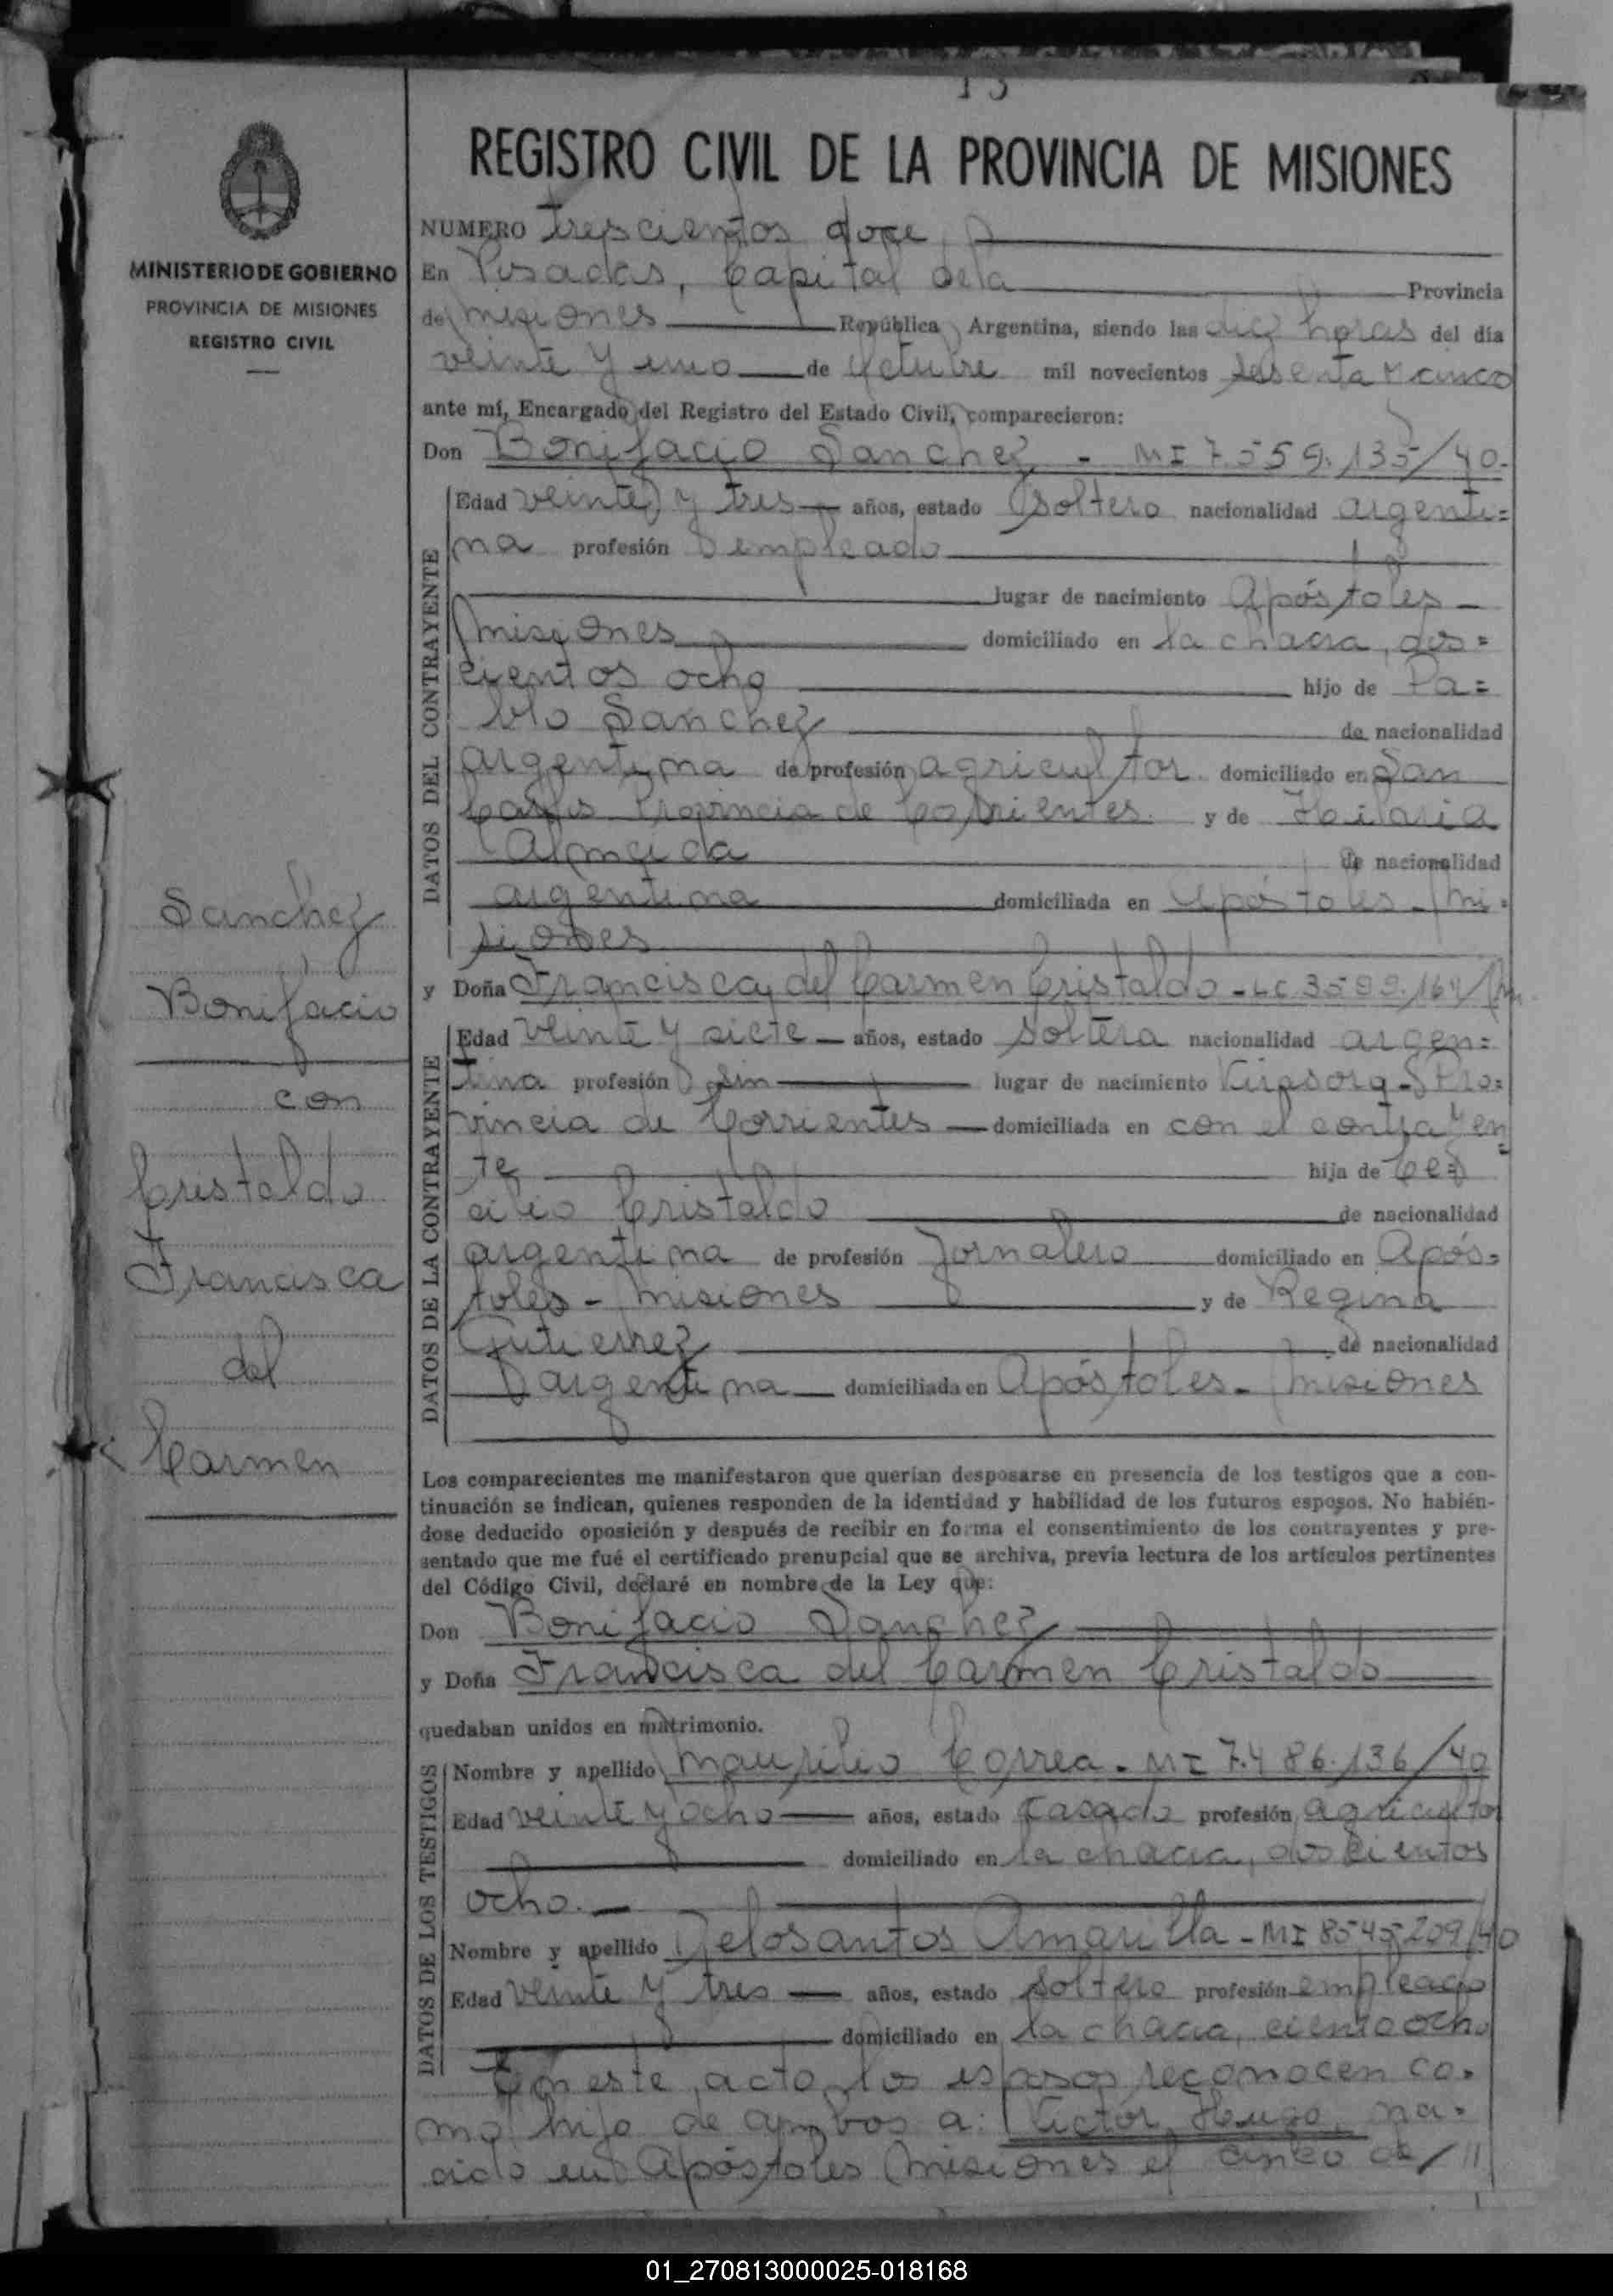 REGISTRO CIVIL DE LA PROVINCIA DE MISIONES
MINISTERIO DE GOBIERNO
PROVINCIA DE MISIONES
REGISTRO CIVIL
NUMERO trescientos doce
En Posadas, Capital de la Provincia
de Misiones República Argentina, siendo las diez horas del día
veinte y uno de Octubre mil novecientos sesenta y cinco
ante mí, Encargado del Registro del Estado Civil, comparecieron:
Don Bonifacio Sanchez - MI 7.559.135/40.
DATOS DEL CONTRAYENTE
Edad veinte y tres años, estado soltero nacionalidad argenti=
na profesión empleado
lugar de nacimiento Apóstoles
Misiones domiciliado en la chacra, dos=
cientos ocho hijo de Pa=
blo Sanchez de nacionalidad
argentina de profesión agricultor domiciliado en San
Carlos Provincia de Corrientes y de Hilaria
de nacionalidad
argentina domiciliada en Apóstoles - Mi=
siones
Sanchez
Bonifacio
con
Cristaldo
Francisca
del
Carmen
y Doña Francisca del Carmen Cristaldo - LC 3599.164
DATOS DE LA CONTRAYENTE
Edad veinte y siete años, estado soltera nacionalidad argen=
tina profesión sin lugar de nacimiento Pro=
vincia de Corrientes domiciliada en con el contrayen
te hija de Ce=
cilio Cristaldo de nacionalidad
argentina de profesión Jornalero domiciliado en Após=
toles - Misiones y de Regina
Gutierrez de nacionalidad
argentina domiciliada en Apóstoles - Misiones
Los comparecientes me manifestaron que querían desposarse en presencia de los testigos que a con-
tinuación se indican, quienes responden de la identidad y habilidad de los futuros esposos. No habién-
dose deducido oposición y después de recibir en forma el consentimiento de los contrayentes y pre-
sentado que me fué el certificado prenupcial que se archiva, previa lectura de los artículos pertinentes
del Código Civil, declaré en nombre de la Ley que:
Don Bonifacio Sanchez
y Doña Francisca del Carmen Cristaldo
quedaban unidos en matrimonio.
DATOS DE LOS TESTIGOS
Nombre y apellido Maurilio Correa - MI 7.486.136/40
Edad veinte y ocho años, estado casado profesión agricultor
domiciliado en la chacra, doscientos
ocho.
Nombre y apellido Delosantos Amarilla - MI 8545209/40
Edad veinte y tres años, estado soltero profesión empleado
domiciliado en la chacra, ciento ocho
En este acto los esposos reconocen co=
mo hijo de ambos a: Victor Hugo, na=
cido en Apóstoles Misiones el cinco de //
01_270813000025-018168